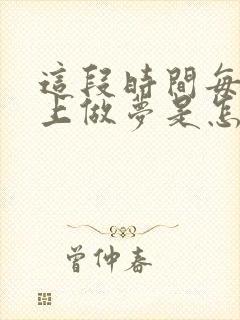 這段時間每
上做夢是怎
曾仲春